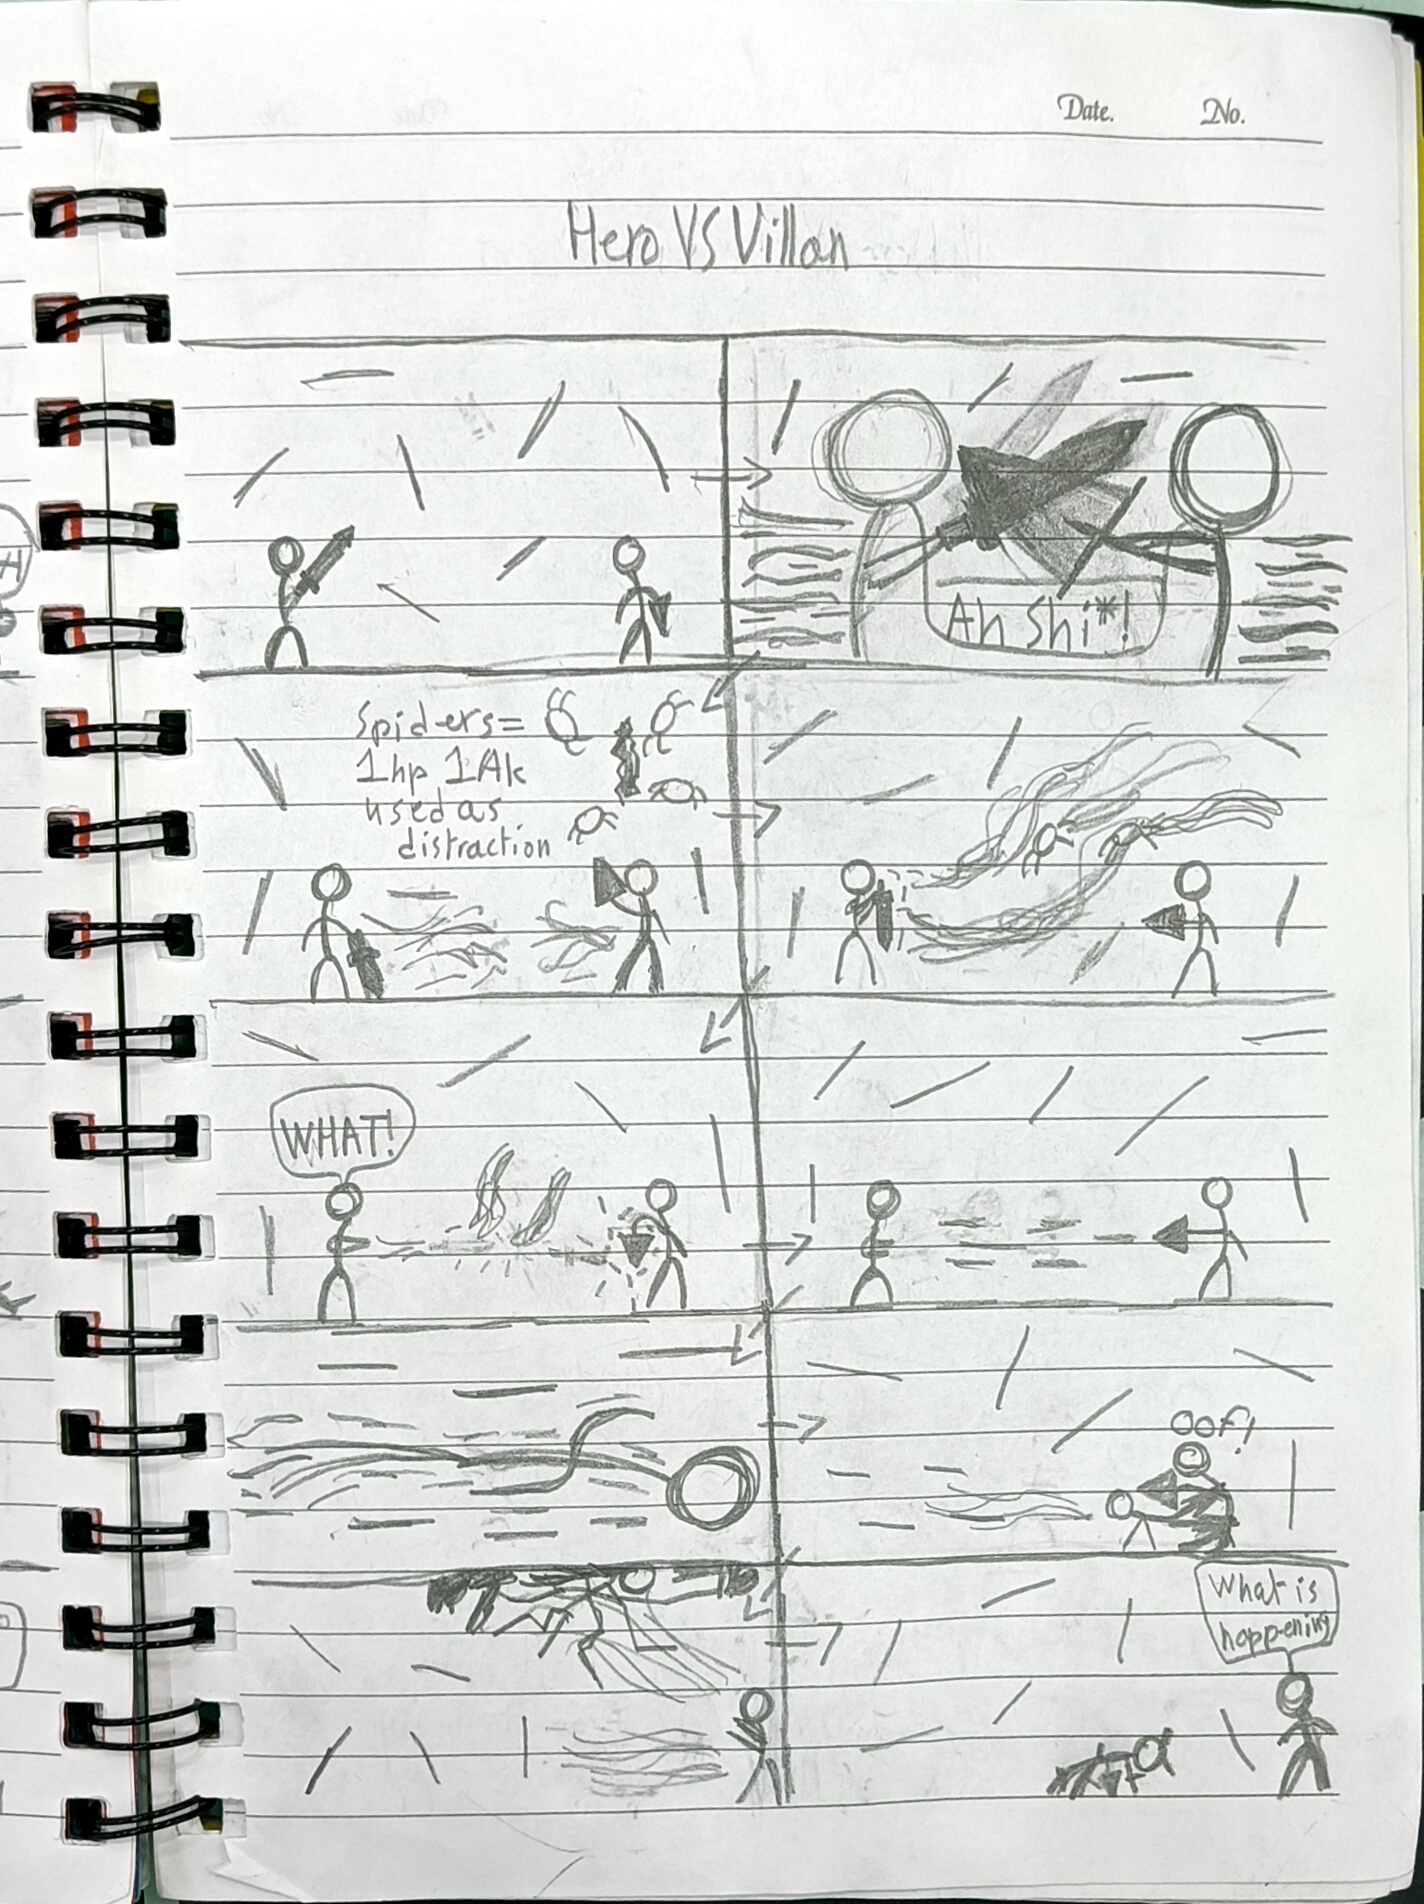 Date. No.
Hero VS Villan
Ah Shi*!
Spiders=
1hp 1Ak
used as
distraction
WHAT!
oof!
What is
happening